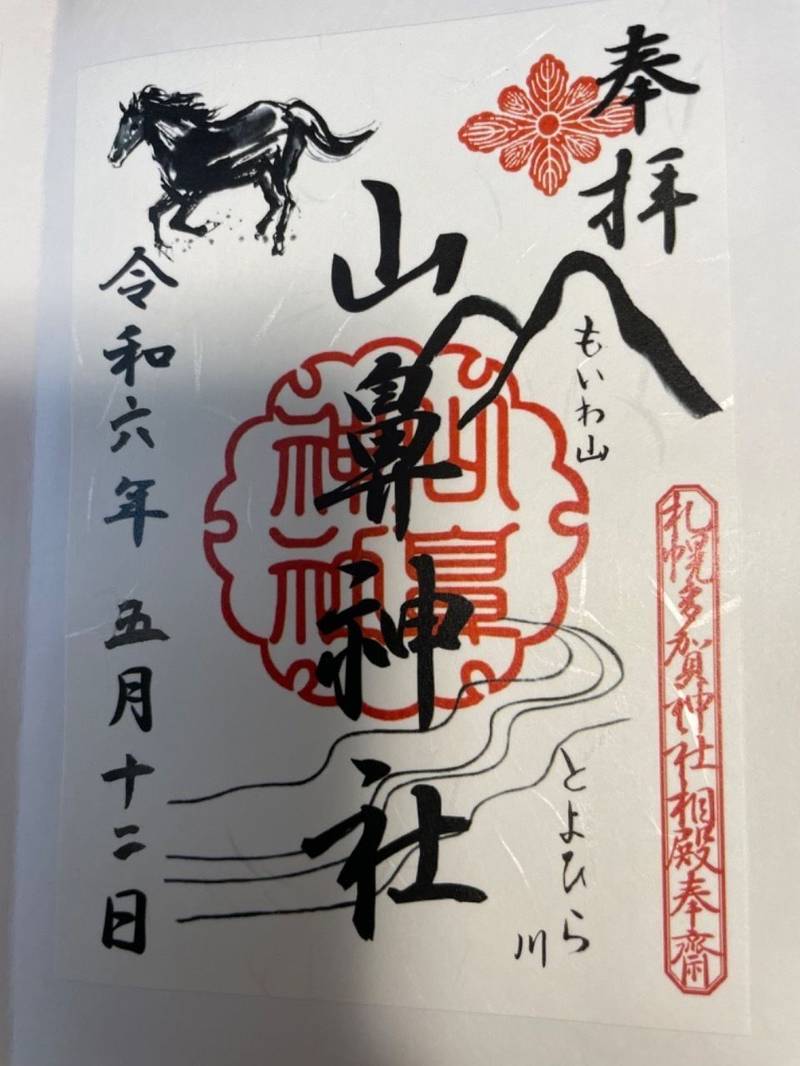 奉拝
もいわ山
札幌多賀神社相殿奉齋
とよひら川
山鼻神社
山鼻神社
令和六年 五月十二日